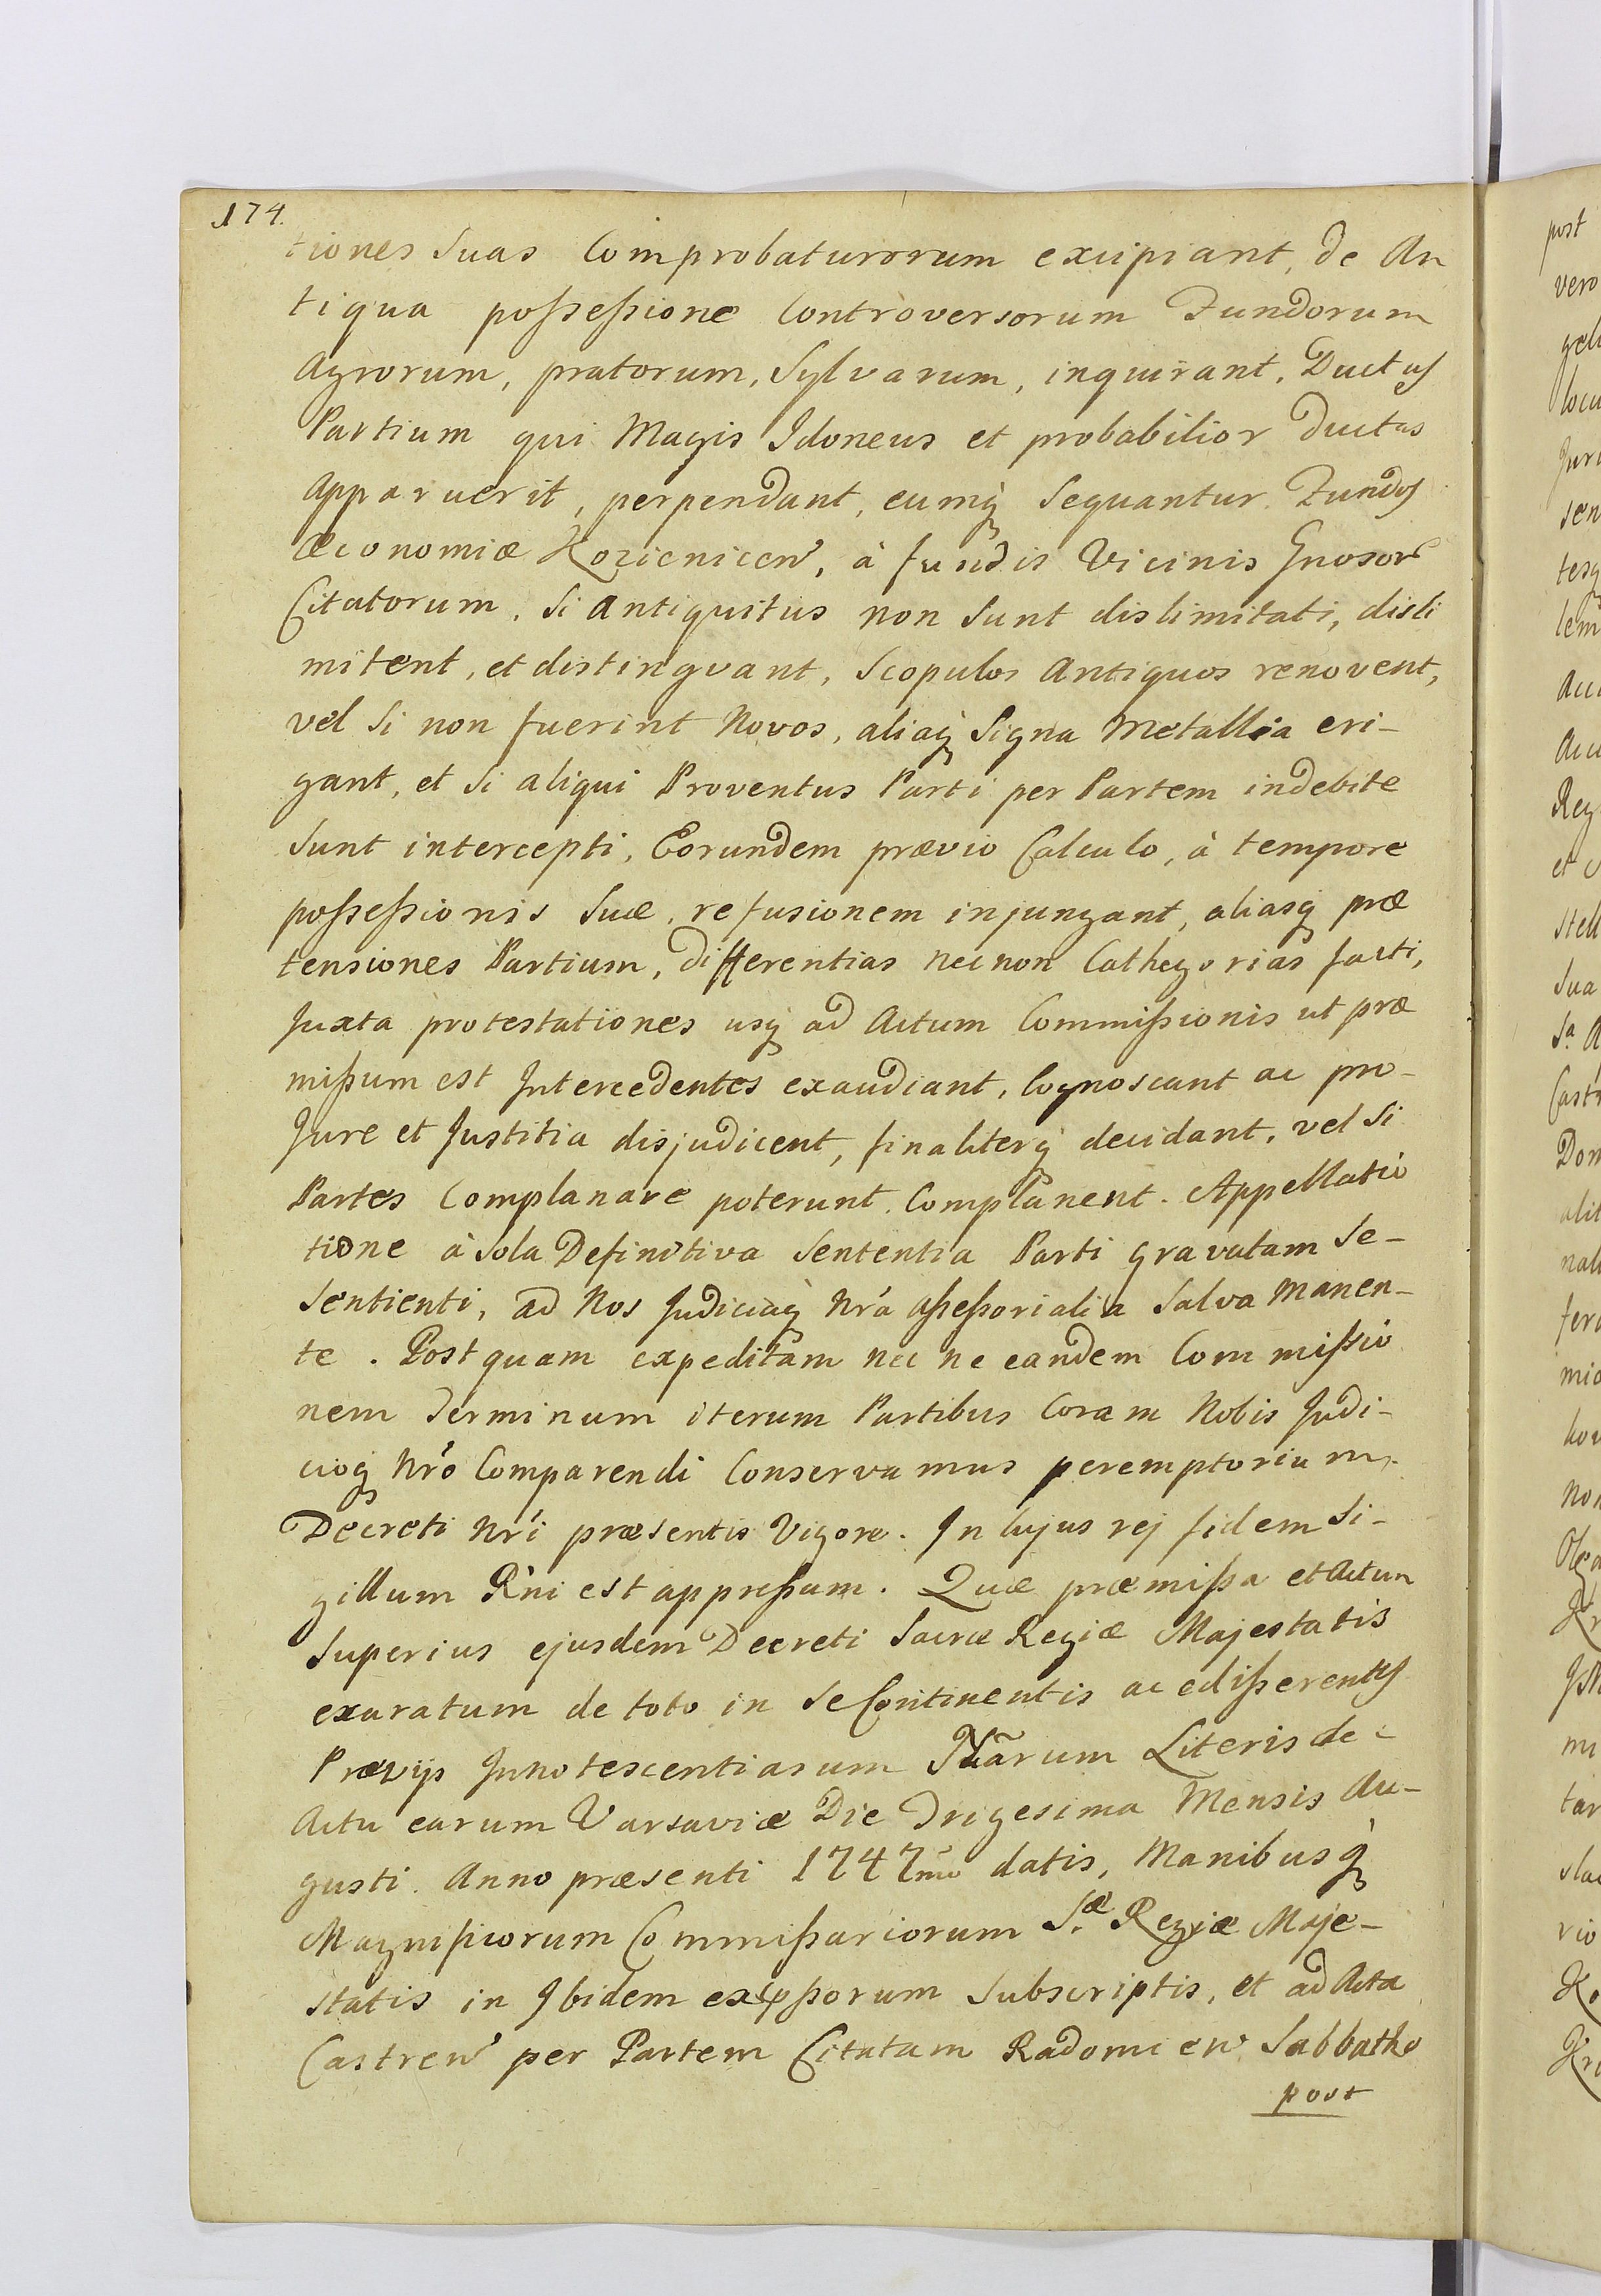 174.
tiones Suas Comprobaturorum excipiant, de An
tiqua poſseſsione Controversorum Fundorum
Agrorum, pratorum, Sylvarum, inquirant, Ductus
Partium qui Magis Idoneus et probabilior Ductus
Apparuerit, perpendant, eumq̀ Sequantur. Fundos
Œconomiæ Kozienicen̄, à fundis Vicinis Gnosor̄
Citatorum, Si Antiquitus non Sunt dislimitati, disli
mitent, et distingvant, Scopulos Antiquos renovent,
vel Si non fuerint Novos, aliaq̀ Signa Metallia eri-
gant, et Si aliqui Proventus Parti per Partem indebite
Sunt intercepti, Eorundem prævio Calculo, à tempore
poſseſsionis Suæ, refusionem injungant, aliasq̀ præ
tensiones Partium, Differentias nec non Cathegorias facti,
Juxta protestationes usq̀ ad Actum Commiſsionis ut præ
miſsum est Intercedentes exaudiant, Cognoscant ac pro-
Jure et Justitia disjudicent, finaliterq̀ decidant, vel Si
Partes Complanare poterunt, Complanent. Appellatio
tione à Sola Definitiva Sententia Parti gravatam Se-
Sentienti, ad Nos Judiciaq̀ Nr̄a Aſseſsorialia Salva Manen-
te. Postquam expeditam nec ne eandem Commiſsio
nem Terminum iterum Partibus Coram Nobis Judi-
cioq̀ Nr̄o Comparendi Conservamus peremptorium.
Decreti Nr̄i præsentis Vigore. In hujus rej fidem Si-
gillum R̄ni est appreſsum. Quæ præmiſsa et Actum
Superius ejusdem Decreti Sacræ Regiæ Majestatis
exaratum de toto in Se Continentis ac ediſserentis
Prævijs Innotescentiarum Literis de
Actu earum Varsaviæ Die Trigesima Mensis Au-
gusti. Anno præsenti 1747mo datis, Manibusq̀
Magnificorum Commiſsariorum S.æ Regiæ Maje-
statis in Ibidem expſsorum Subscriptis, et ad Acta
Castren̄ per Partem Citatam Radomien̄ Sabbatho
post
post
vero